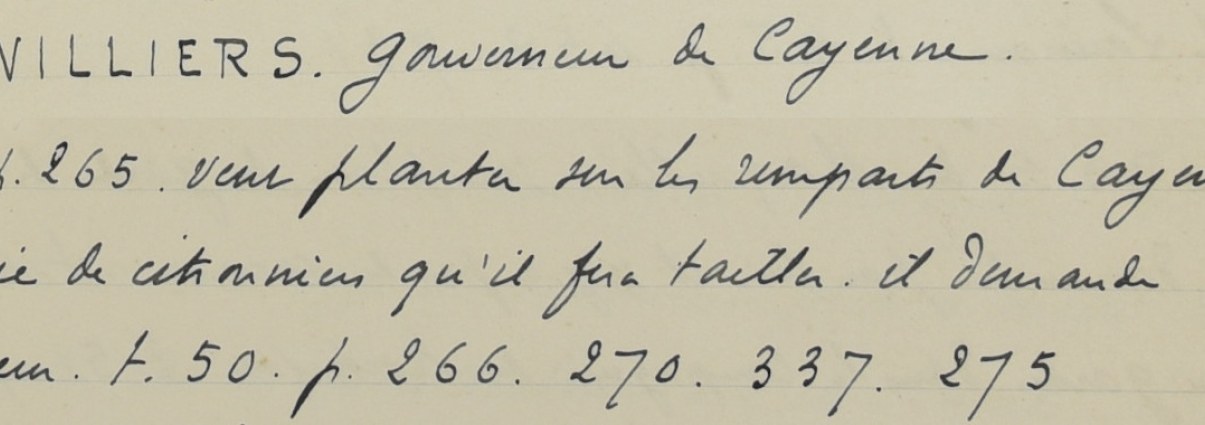 VILLIERS. Gouverneur de Cayenne.
p. 265. veut planter sur les remparts de Cayen
ie de citronniers qu'il fera tailler. il demande
eur. t. 50. p. 266. 270. 337. 275